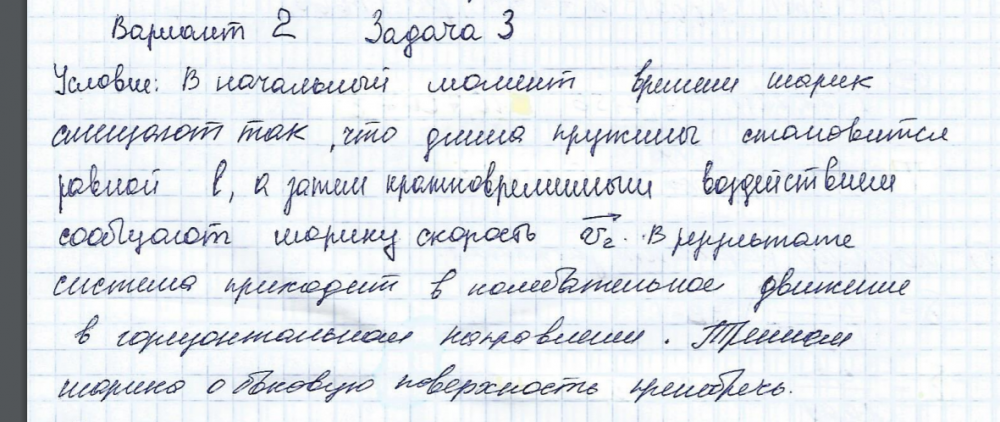 Вариант 2 Задача 3
Условие: В начальный момент времени шарик
смещают так, что длина пружины становится
равной l, а затем кратковременным воздействием
сообщают шарику скорость v₂. В результате
система приходит в колебательное движение
в горизонтальном направлении. Трением
шарика о боковую поверхность пренебречь.